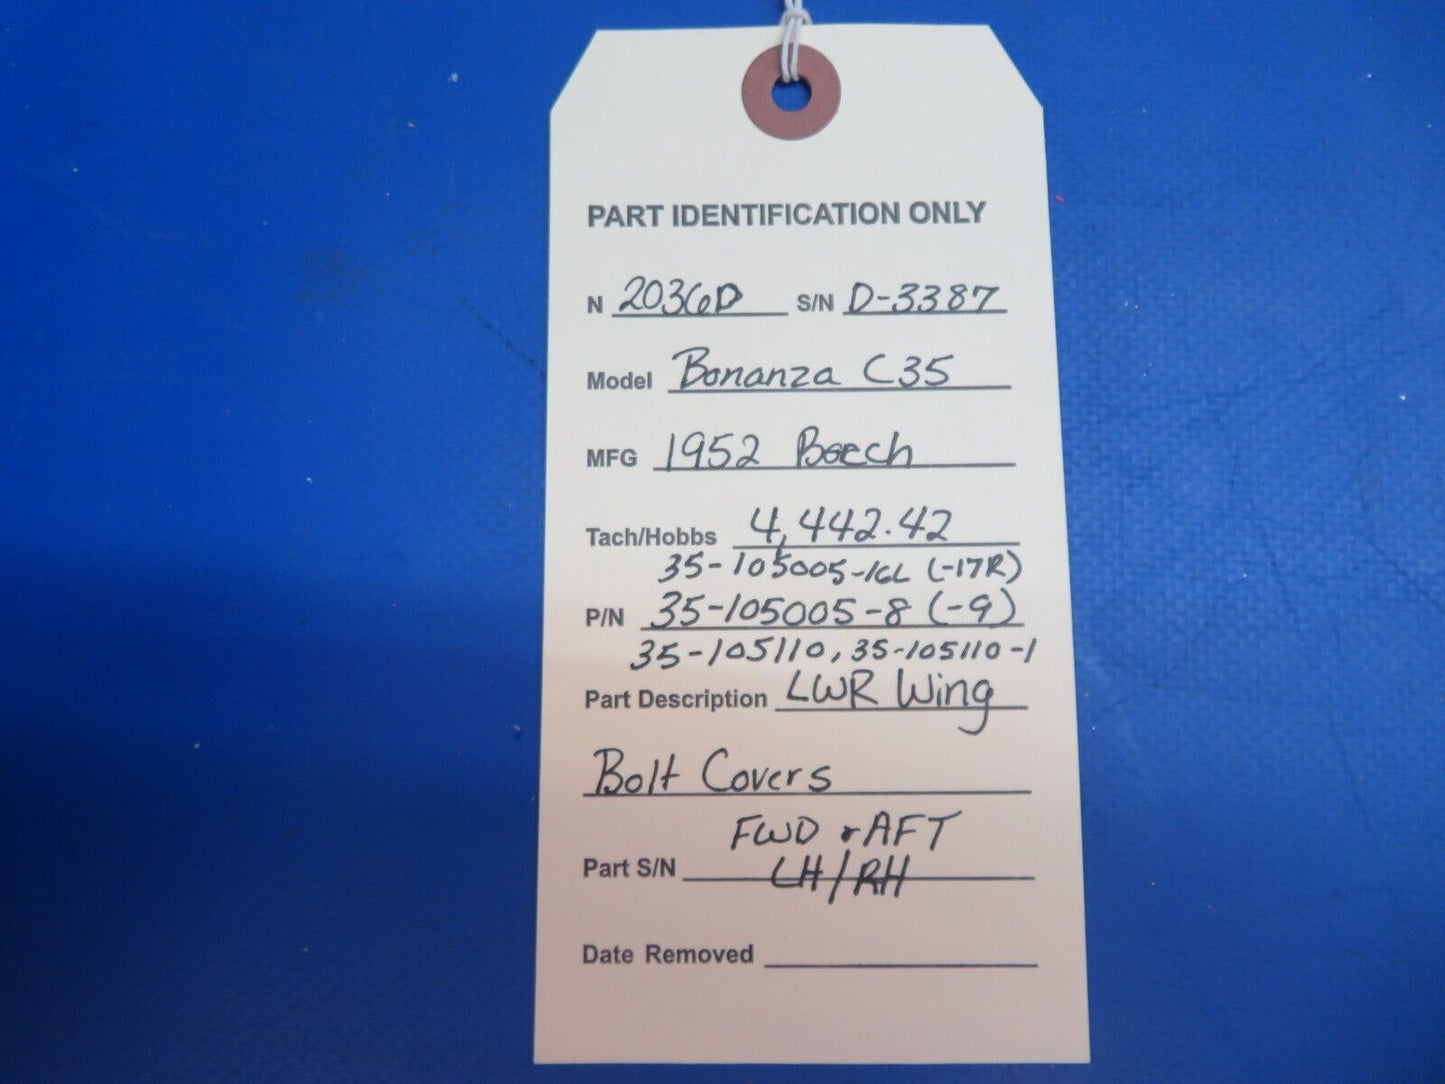 PART IDENTIFICATION ONLY
N 2036D S/N D-3387
Model Bonanza C35
MFG 1952 Beech
Tach/Hobbs 4,442.42
35-105005-16L (-17R)
P/N 35-105005-8 (-9)
35-105110, 35-105110-1
Part Description LWR Wing
Bolt Covers
FWD & AFT
Part S/N LH/RH
Date Removed